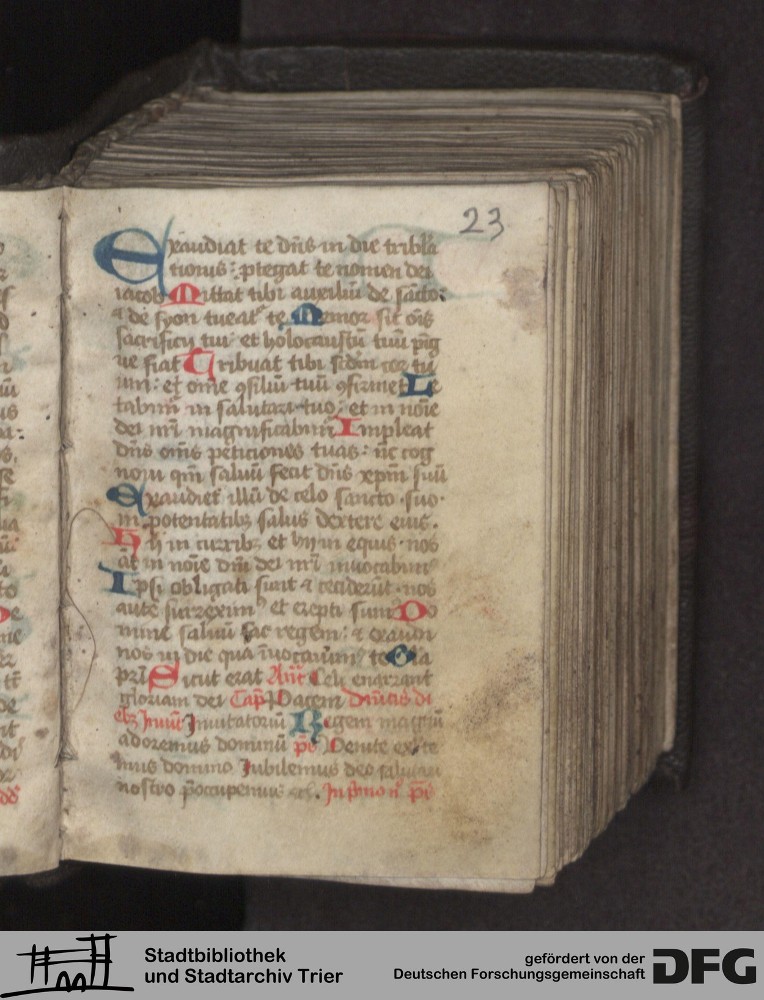 23
Exaudiat te dn̄s in die tribla
tionis: ꝓtegat te nomen dei
iacob Mittat tibi auxiliū de sācto:
⁊ de syon tueat᷑ te Memor sit oīs
sacrificii tui: et holocaustū tuū pīg
ue fiat Tribuat tibi scdm̄ cor tu
um: et om̄e ꝯsiliū tuū ꝯfirmet Le
tabim᷑ in salutari tuo: et in noīe
dei nr̄i magnificabim᷑ Impleat
dn̄s om̄s peticiones tuas: nc̄ cog
noui qm̄ saluū fecit dn̄s xpm̄ suū
Exaudiet illū de celo sancto suo:
in potentatibꝫ salus dextere eius.
Hii in curribꝫ et hii in equis: nos
āt in noīe dn̄i dei nr̄i inuocabim᷑
Ipsi obligati sunt ⁊ ceciderūt: nos
aute surrexim᷑ et erecti sum᷑ Do
mine saluū fac regem: ⁊ exaudi
nos in die qua īuocauim᷑ te Gla
pr̄i Sicut erat Añ Celi enarrant
gloriam dei Cap̄ Pacem Dn̄icis di
ebꝫ Inuit̄ Inuitatoriū Regem magnū
adoremus dominū p̄s Venite exlte
mus domino Iubilemus deo salutari
nostro p̄occupemus
Stadtbibliothek
und Stadtarchiv Trier
gefördert von der
Deutschen Forschungsgemeinschaft
DFG